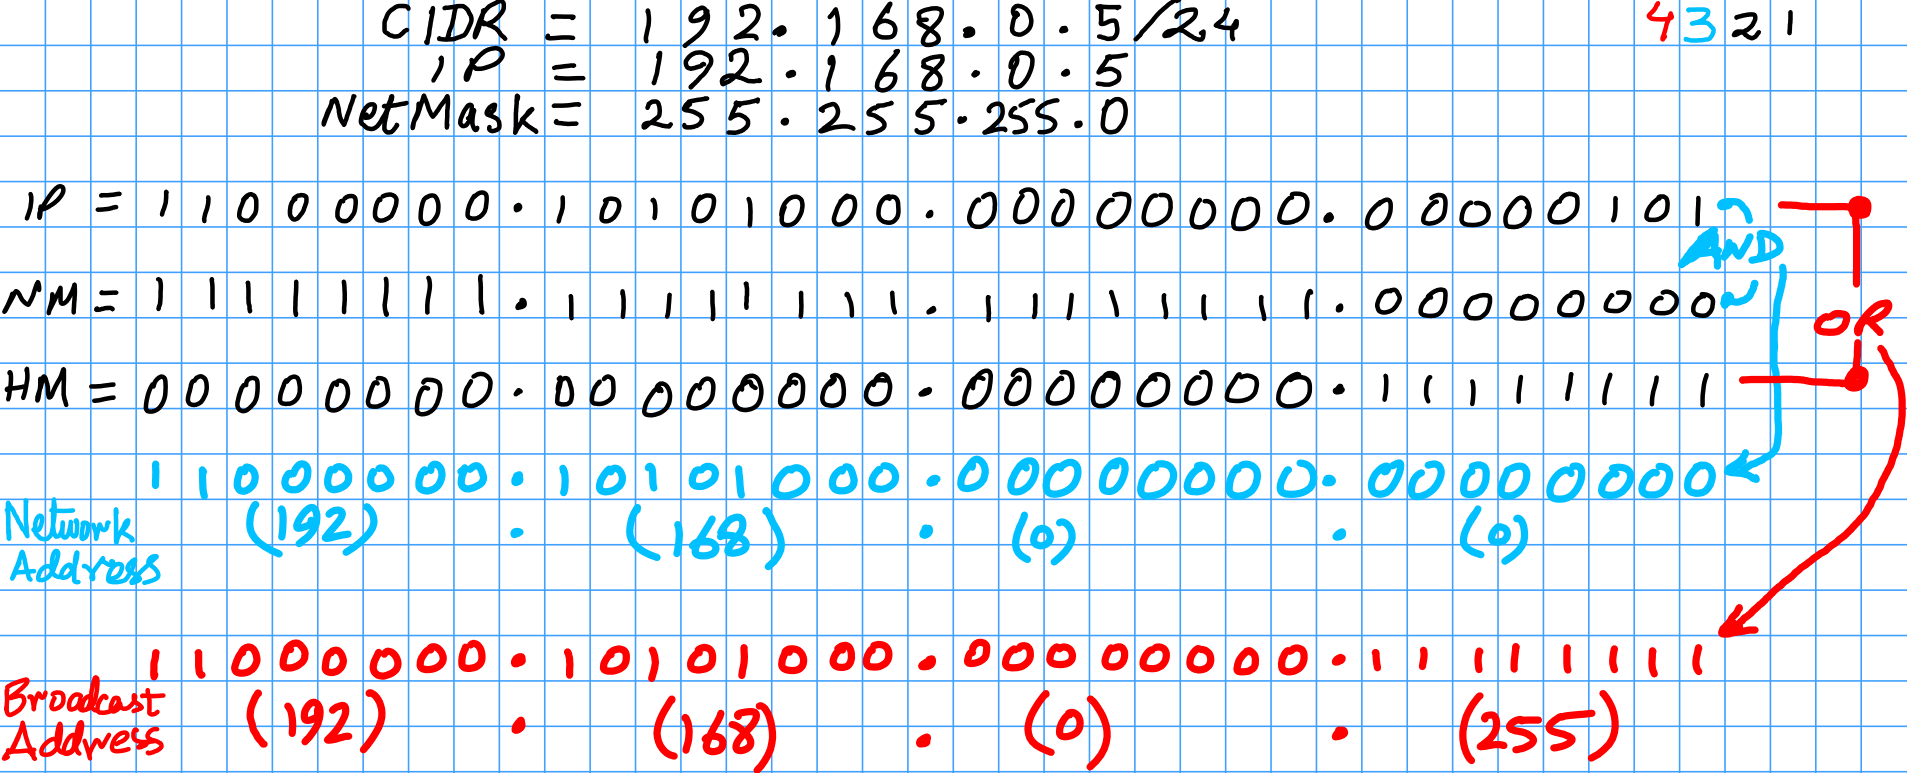 CIDR = 192.168.0.5/24 4321
IP = 192.168.0.5
NetMask = 255.255.255.0
IP = 11000000.10101000.00000000.00000101
AND
NM = 11111111.11111111.11111111.00000000
OR
HM = 00000000.00000000.00000000.11111111
11000000.10101000.00000000.00000000
Network (192) . (168) . (0) . (0)
Address
11000000.10101000.00000000.11111111
Broadcast (192) . (168) . (0) . (255)
Address